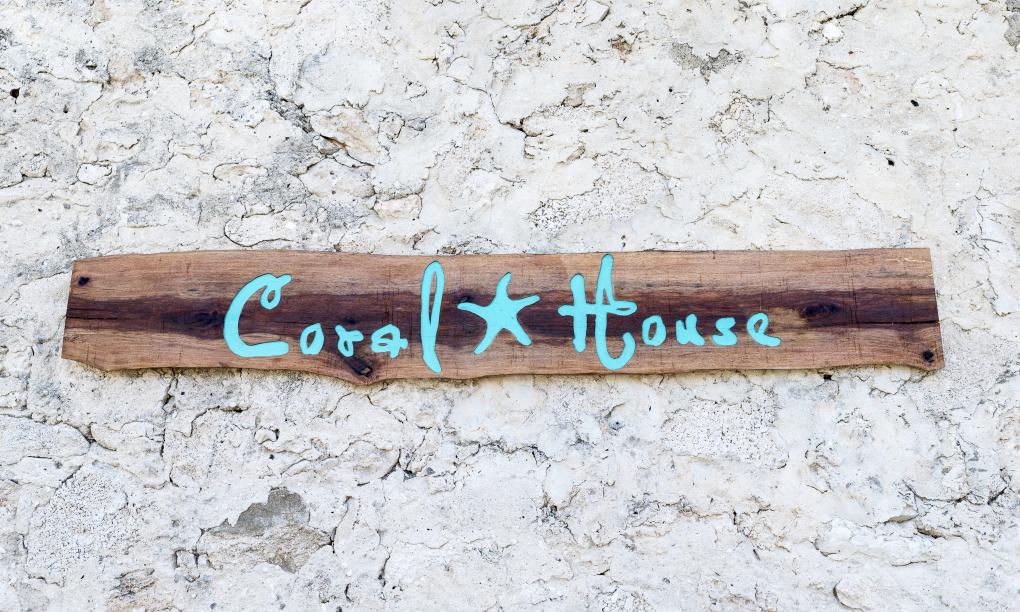 Coral House